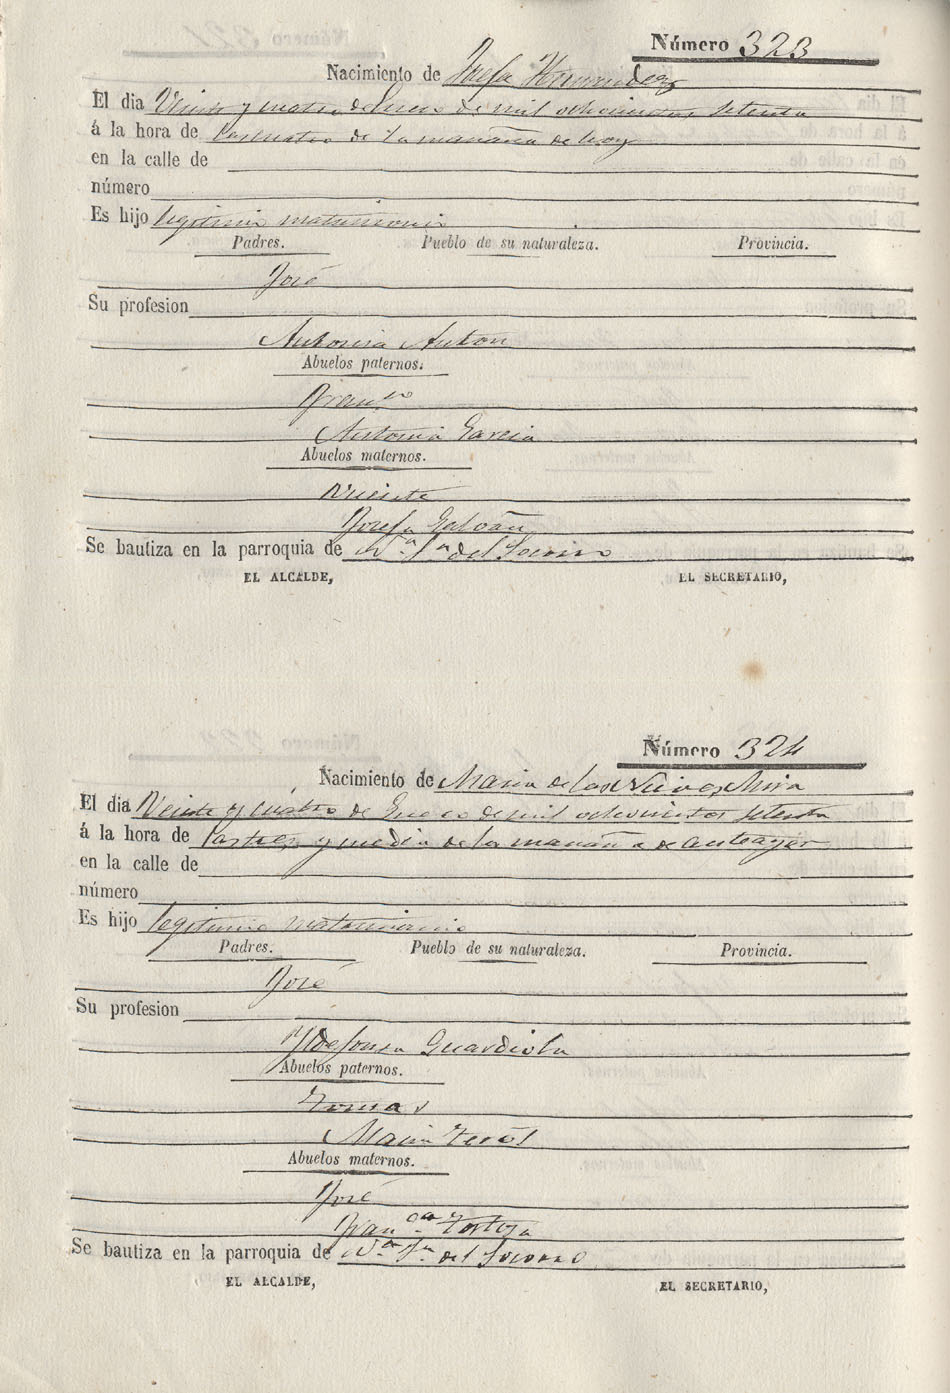 Número 323
Nacimiento de Josefa Hernandez
El dia Veinte y cuatro de Enero de mil ochocientos setenta
á la hora de las cuatro de la mañana de hoy
en la calle de
número
Es hijo legitimo matrimonio
Padres. Pueblo de su naturaleza. Provincia.
José
Su profesion
Antonia Anton
Abuelos paternos.
Franco
Antonia Garcia
Abuelos maternos.
Vicente
Josefa Galvañ
Se bautiza en la parroquia de Na. Sa. del Socorro
EL ALCALDE, EL SECRETARIO,
Número 324
Nacimiento de Maria de las Nieves Mira
El dia Veinte y cuatro de Enero de mil ochocientos setenta
á la hora de las tres y media de la mañana de anteayer
en la calle de
número
Es hijo legitimo matrimonio
Padres. Pueblo de su naturaleza. Provincia.
José
Su profesion
Yldefonsa Guardiola
Abuelos paternos.
Tomas
Maria Terol
Abuelos maternos.
José
Franca Tortosa
Se bautiza en la parroquia de Na. Sa. del Socorro
EL ALCALDE, EL SECRETARIO,